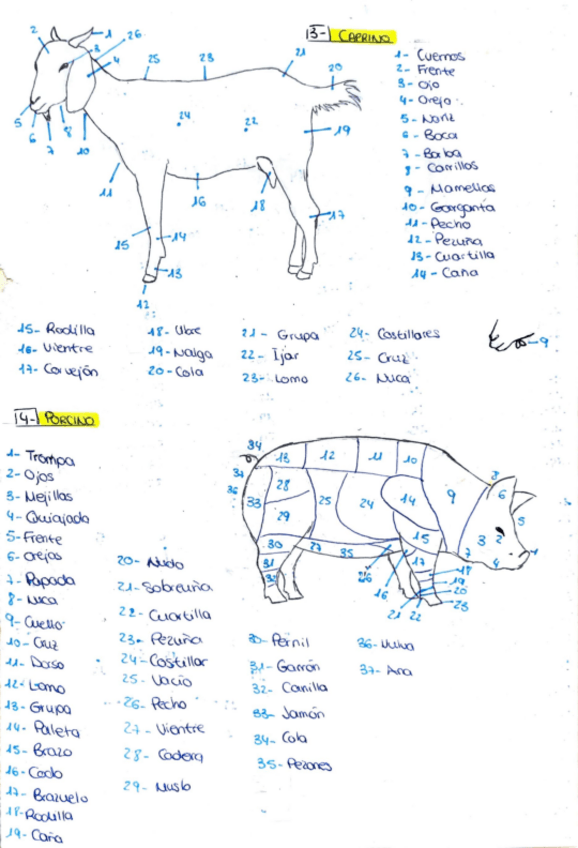 13- CAPRINO
1- Cuernos
2- Frente
3- Ojo
4- Oreja
5- Nariz
6- Boca
7- Barba
8- Carrillos
9- Mamellas
10- Garganta
11- Pecho
12- Pezuña
13- Cuartilla
14- Caña
15- Rodilla
16- Vientre
17- Corvejón
18- Ubre
19- Nalga
20- Cola
21- Grupa
22- Ijar
23- Lomo
24- Costillares
25- Cruz
26- Nuca
14- PORCINO
1- Trompa
2- Ojos
3- Mejillas
4- Quijada
5- Frente
6- Orejas
7- Papada
8- Nuca
9- Cuello
10- Cruz
11- Dorso
12- Lomo
13- Grupa
14- Paleta
15- Brazo
16- Codo
17- Brazuelo
18- Rodilla
19- Caña
20- Nudo
21- Sobreuña
22- Cuartilla
23- Pezuña
24- Costillar
25- Vacio
26- Pecho
27- Vientre
28- Cadera
29- Muslo
30- Pernil
31- Garrón
32- Canilla
33- Jamón
34- Cola
35- Pezones
36- Vulva
37- Ana